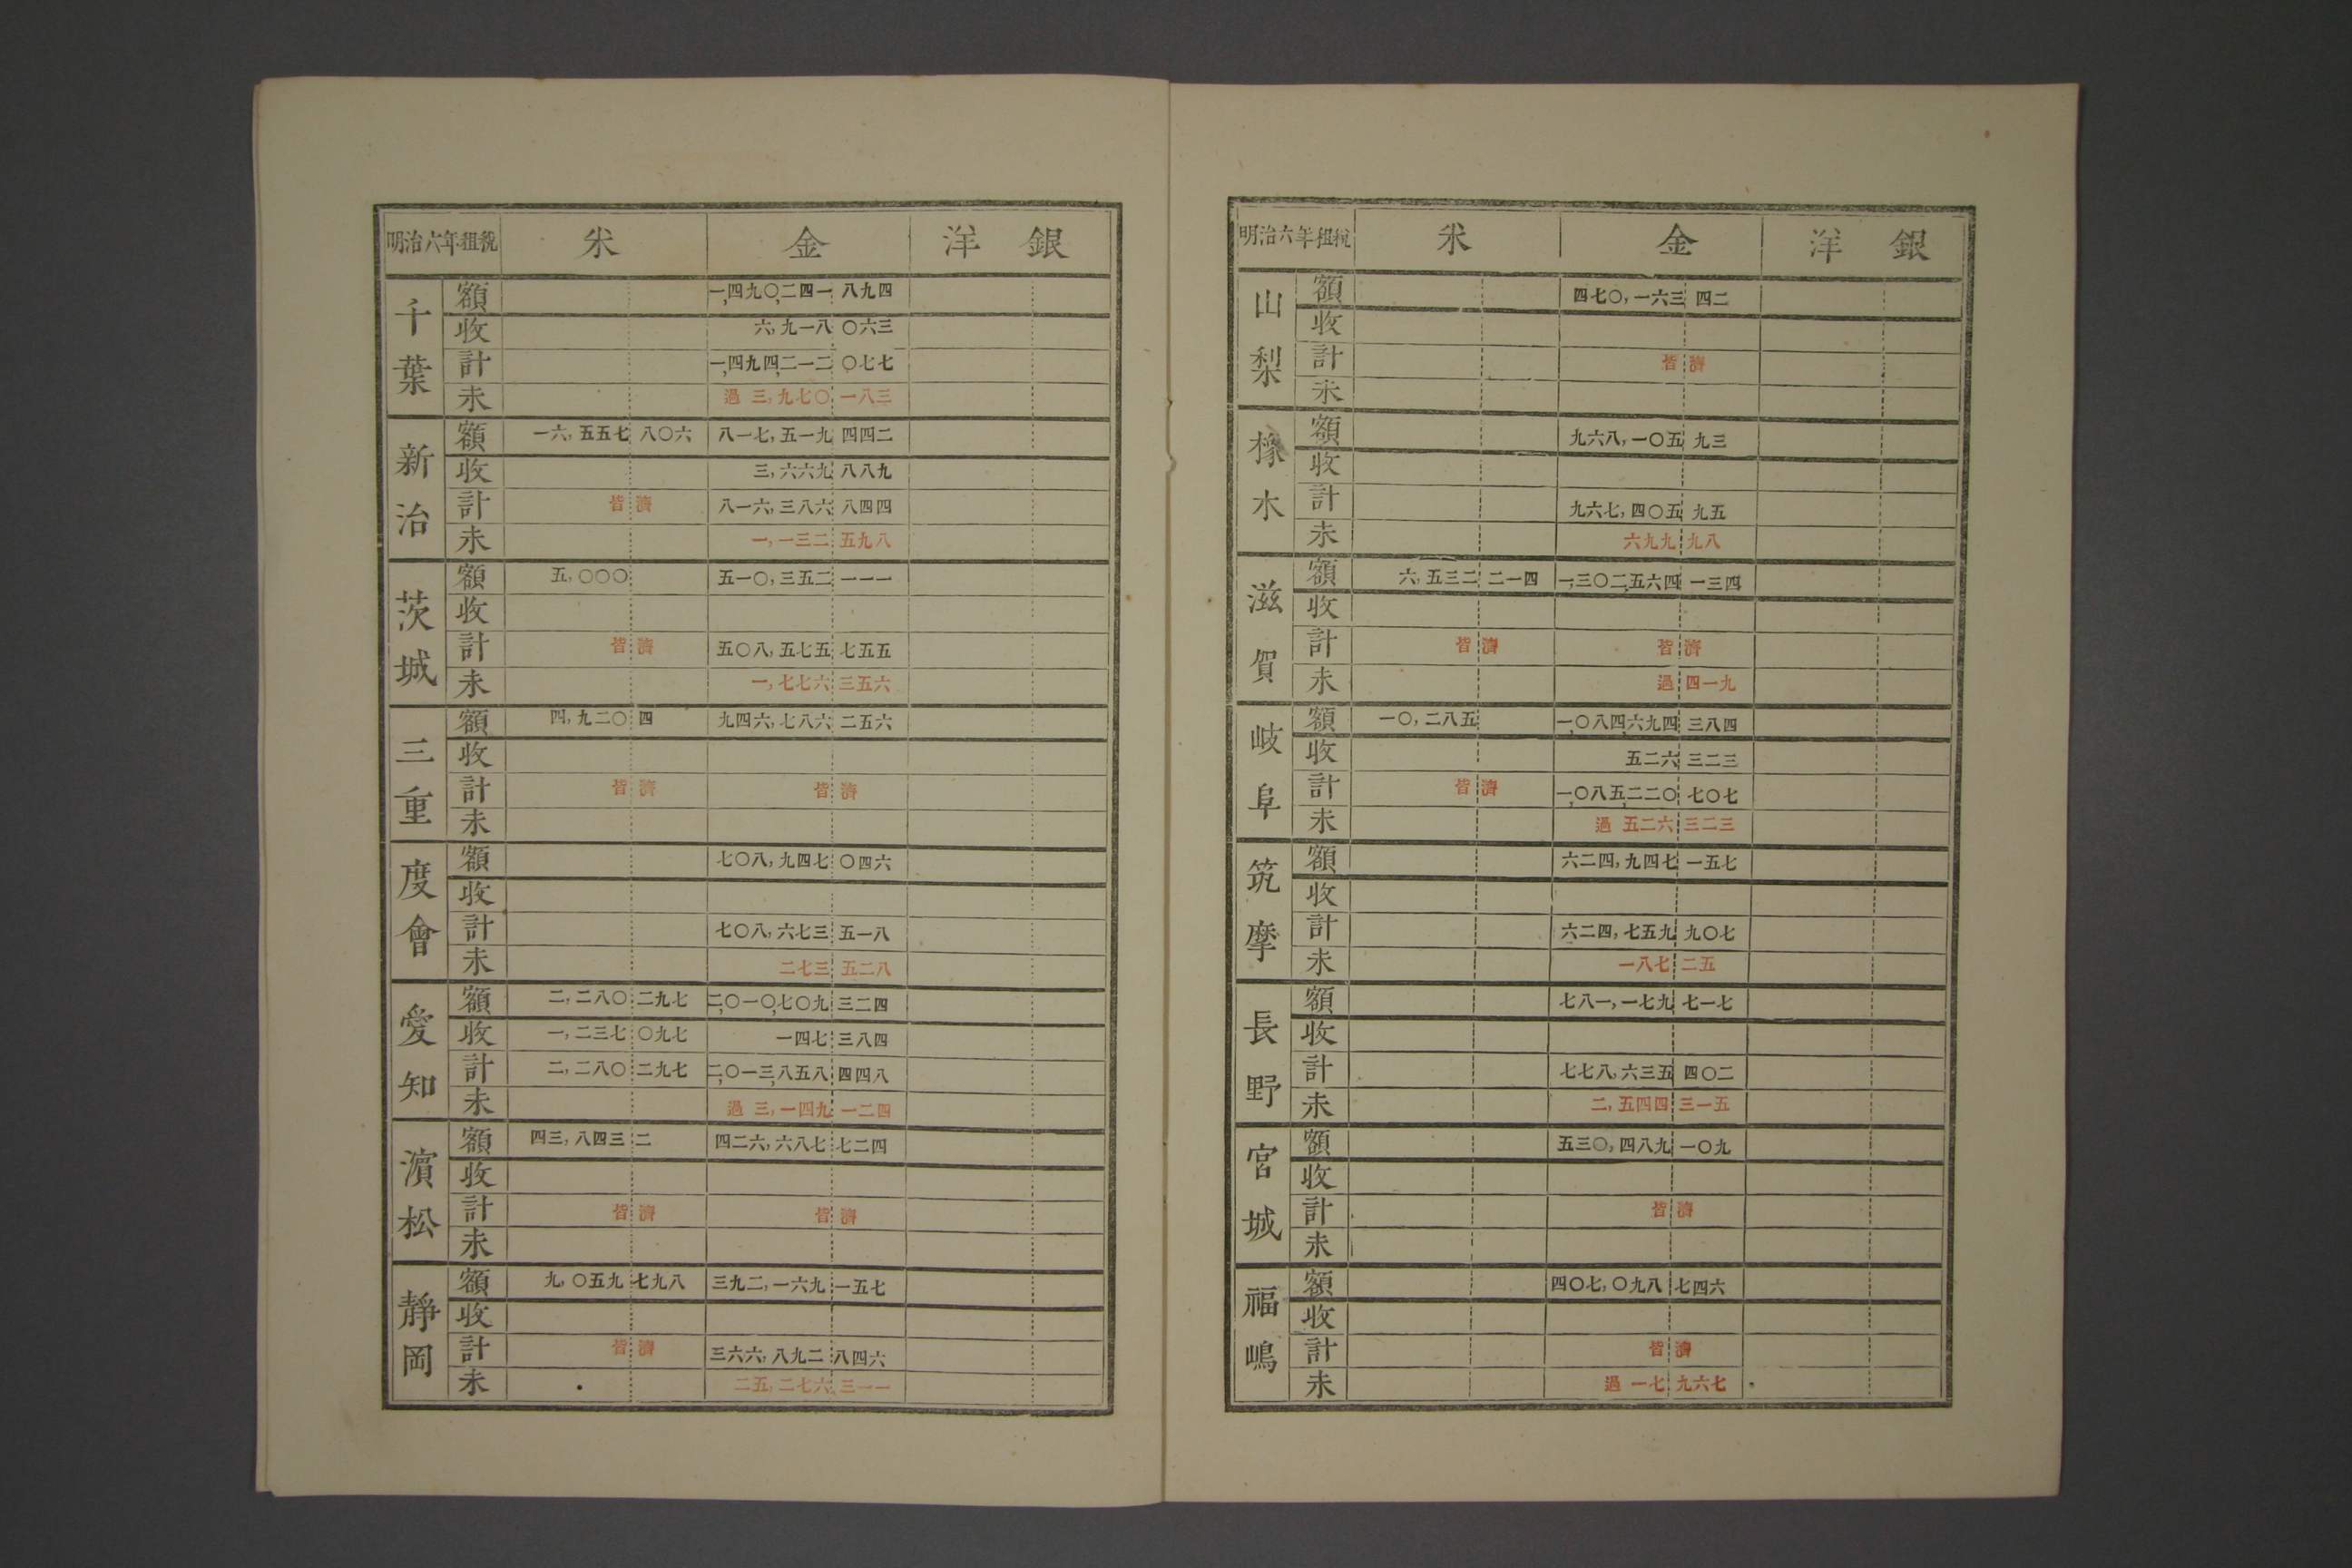 明治六年租税 米 金 洋銀
千葉
額 一,四九〇,二四一 八九四
收 六,九一八 〇六三
計 一,四九四,二一二 〇七七
未 過 三,九七〇 一八三
新治
額 一六,五五七 八〇六 八一七,五一九 四四二
收 三,六六九 八八九
計 皆濟 八一六,三八六 八四四
未 一,一三二 五九八
茨城
額 五,〇〇〇 五一〇,三五二 一一一
收
計 皆濟 五〇八,五七五 七五五
未 一,七七六 三五六
三重
額 四,九二〇 四 九四六,七八六 二五六
收
計 皆濟 皆濟
未
度會
額 七〇八,九四七 〇四六
收
計 七〇八,六七三 五一八
未 二七三 五二八
愛知
額 二,二八〇 二九七 二,〇一〇,七〇九 三二四
收 一,二三七 〇九七 一四七 三八四
計 二,二八〇 二九七 二,〇一三,八五八 四四八
未 過 三,一四九 一二四
濵松
額 四三,八四三 二 四二六,六八七 七二四
收
計 皆濟 皆濟
未
靜岡
額 九,〇五九 七九八 三九二,一六九 一五七
收
計 皆濟 三六六,八九二 八四六
未 二五,二七六 三一一
明治六年租税 米 金 洋銀
山梨
額 四七〇,一六三 四二
收
計 皆濟
未
橡木
額 九六八,一〇五 九三
收
計 九六七,四〇五 九五
未 六九九 九八
滋賀
額 六,五三二 二一四 一,三〇二,五六四 一三四
收
計 皆濟 皆濟
未 過 四一九
岐阜
額 一〇,二八五 一,〇八四,六九四 三八四
收 五二六 三二三
計 皆濟 一,〇八五,二二〇 七〇七
未 過 五二六 三二三
筑摩
額 六二四,九四七 一五七
收
計 六二四,七五九 九〇七
未 一八七 二五
長野
額 七八一,一七九 七一七
收
計 七七八,六三五 四〇二
未 二,五四四 三一五
宮城
額 五三〇,四八九 一〇九
收
計 皆濟
未
福嶋
額 四〇七,〇九八 七四六
收
計 皆濟
未 過 一七 九六七